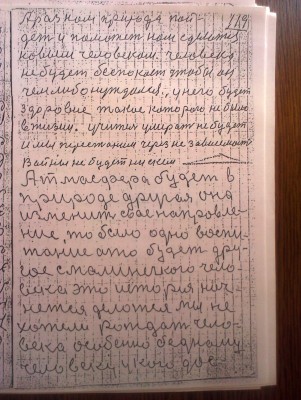 119
А раз нам природа пой-
дет и поможет нам сделатся
новым человеком. человека
не будет беспокоит чтобы он
чем либо нуждался, у него будет
здоровие такое которого не было
в жизни. учится умират не будет
и мы перестаним через не зависимост
Войны не будет ни с кем
Атмасфера будет в
природе другая она
изменит свое направле-
ние, то было одно воспи-
тание а то будет дру-
гое с маленкого чело-
века это история нач-
нется делотся мы не
хотели рождат чело-
века особенно бедному
человеку у кого дос-